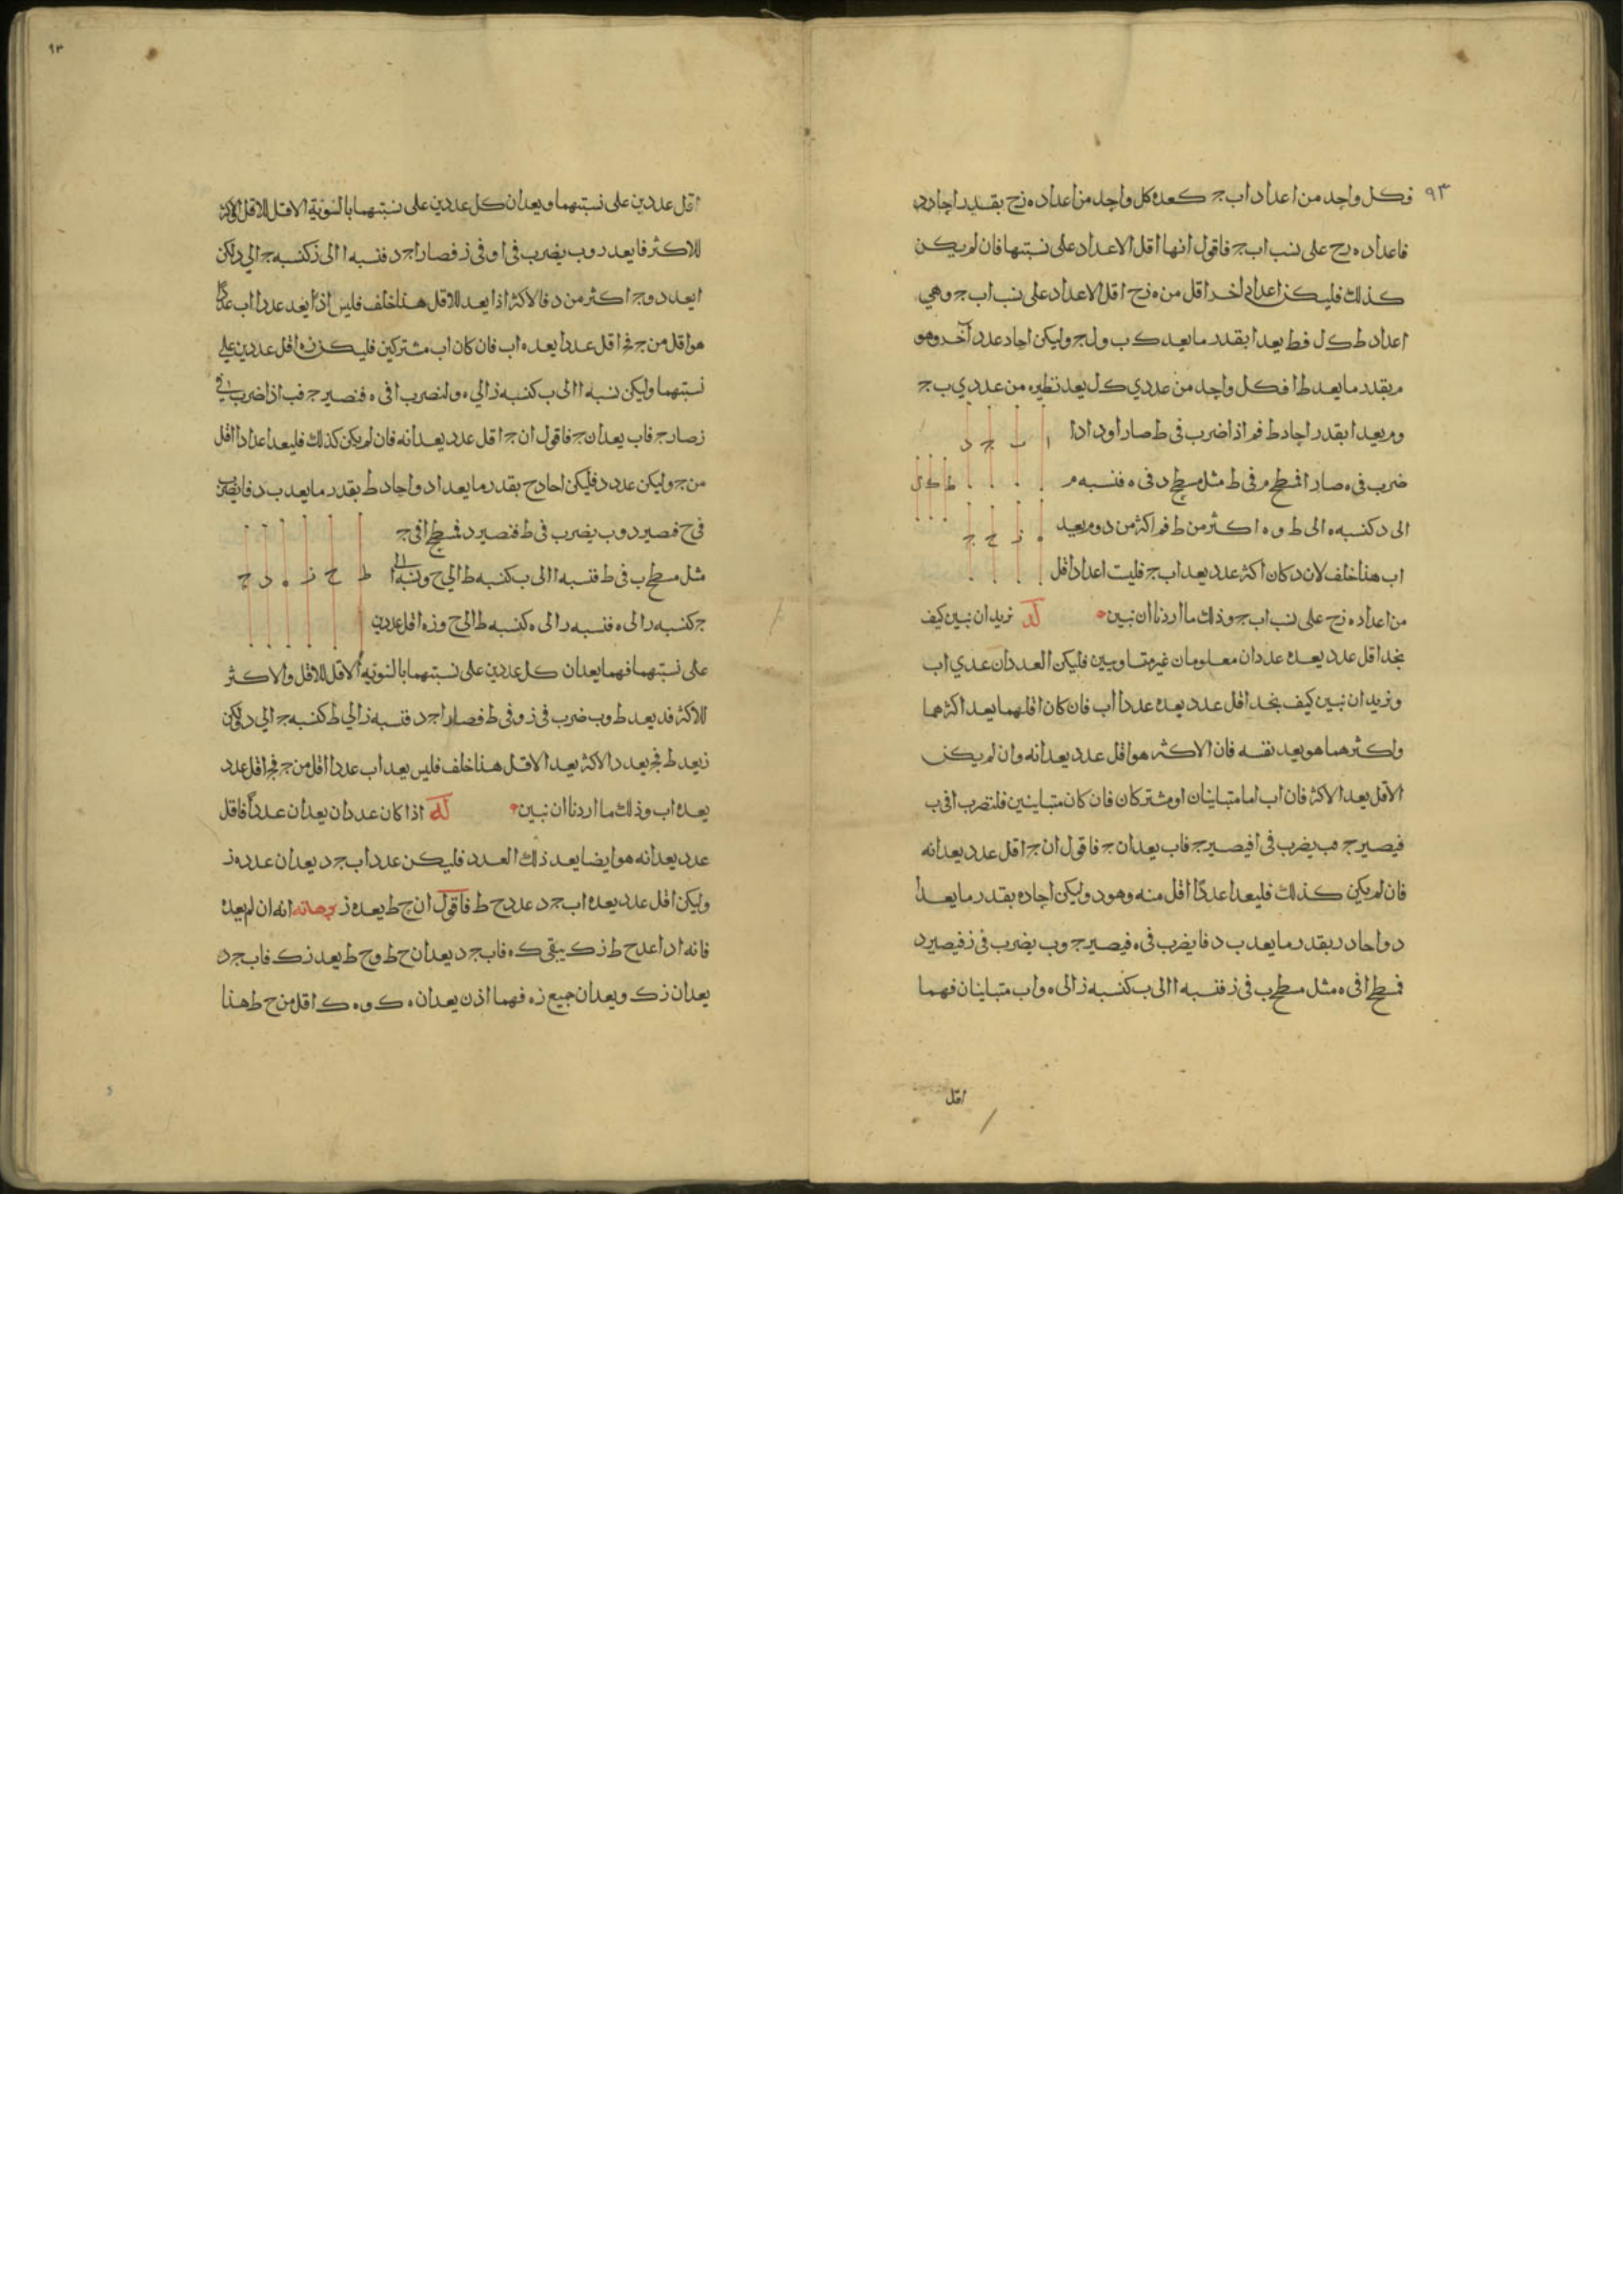 ٩٣
فكل واحد من اعداد ا ب ج كعدة كل واحد من اعداد ه ز ح بقدر احاد د
فاعداد ه ز ح على نسب ا ب ج فاقول انها اقل الاعداد على نسبتها فان لم يكن
كذلك فليكن اعداد اخر اقل من ه ز ح اقل الاعداد على نسب ا ب ج وهي
اعداد ط ك ل فط يعد ا بقدر ما يعد ك ب ول ج وليكن احاد عدد آخر وهو
م بقدر ما يعد ط ا فكل واحد من عددي ك ل يعد نظيره من عددي ب ج
وم يعد ا بقدر احاد ط فم اذا ضرب في ط صار ا ود اذا
ا ب ج د
ضرب في ه صار ا فمسطح م في ط مثل مسطح د في ه فنسبه م
ط ك ل
الى د كنسبه ه الى ط و ه اكثر من ط فم اكثر من د وم يعد
ه ز ح ج
ا ب هذا خلف لان د كان اكثر عدد يعد ا ب ج فليست اعداد اقل
من اعداد ه ز ح على نسب ا ب ج وذلك ما اردنا ان نبين لد نريد ان نبين كيف
نجد اقل عدد يعده عددان معلومان غير متساويين فليكن العددان عددي ا ب
ونريد ان نبين كيف نجد اقل عدد يعده عددا ا ب فان كان اقلهما يعد اكثرهما
واكثرهما هو يعد نفسه فان الاكثر هو اقل عدد يعدانه وان لم يكن
الاقل يعد الاكثر فان ا ب اما متباينان او مشتركان فان كان متباينين فلنضرب ا في ب
فيصير ج فب يضرب في ا فيصير ج فا ب يعدان ج فاقول ان ج اقل عدد يعدانه
فان لم يكن كذلك فليعدا عددًا اقل منه وهو د وليكن احاد ه بقدر ما يعد ا
د واحاد ز بقدر ما يعد ب د فا يضرب في ه فيصير د وب يضرب في ز فيصير د
فمسطح ا في ه مثل مسطح ب في ز فنسبه ا الى ب كنسبه ز الى ه وا ب متباينان فهما
اقل
٩٣
اقل عددين على نسبتهما ويعدان كل عددين على نسبتهما بالسوية الاقل للاقل والاكثر
للاكثر فا يعد ز وب يضرب في ا وفي ز فصار ا ج د فنسبه ا الى ز كنسبه ج الى د لكن
ا يعد ز وج اكثر من د فالاكثر اذا يعد للاقل هذا خلف فليس اذًا يعد عددا ا ب عددًا
هو اقل من ج فج اقل عدد يعده ا ب فان كان ا ب مشتركين فليكن ز ه اقل عددين على
نسبتهما وليكن نسبه ا الى ب كنسبه ز الى ه ولنضرب ا في ه فنصير ج فب اذا ضرب في
ز صار ج فا ب يعدان ج فاقول ان ج اقل عدد يعدانه فان لم يكن كذلك فليعدا عددا اقل
من ج وليكن عدد د فليكن احاد ح بقدر ما يعد ا د واحاد ط بقدر ما يعد ب د فا يضرب
في ح فصير د وب يضرب في ط فنصير د فمسطح ا في ح
مثل مسطح ب في ط فنسبه ا الى ب كنسبه ط الى ح ونسبه ا الى
ط ح ز ه د ج
ب كنسبه ز الى ه فنسبه ز الى ه كنسبه ط الى ح وز ه اقل عددين
على نسبتهما فهما يعدان كل عددين على نسبتهما بالسوية الاقل للاقل والاكثر
للاكثر فز يعد ط وب ضرب في ز وفي ط فصار ا ج د فنسبه ز الى ط كنسبه ج الى د ولكن
ز يعد ط فج يعد د الاكثر يعد الاقل هذا خلف فليس يعد ا ب عددا اقل من ج فج اقل عدد
يعده ا ب وذلك ما اردنا ان نبين له اذا كان عددان يعدان عددًا فاقل
عدد يعدانه هو ايضا يعد ذلك العدد فليكن عددا ب ج د يعدان عدد ه ز
وليكن اقل عدد يعده ا ب ج د عدد ح ط فاقول ان ح ط يعد ه ز برهانه انه ان لم يعده
فانه اذا عد ح ط ز ك يبقى ك ه فا ب ج د يعدان ح ط وح ط يعد ز ك فا ب ج د
يعدان ز ك ويعدان جميع ز ه فهما اذن يعدان ه ك و ه ك اقل من ح ط هذا